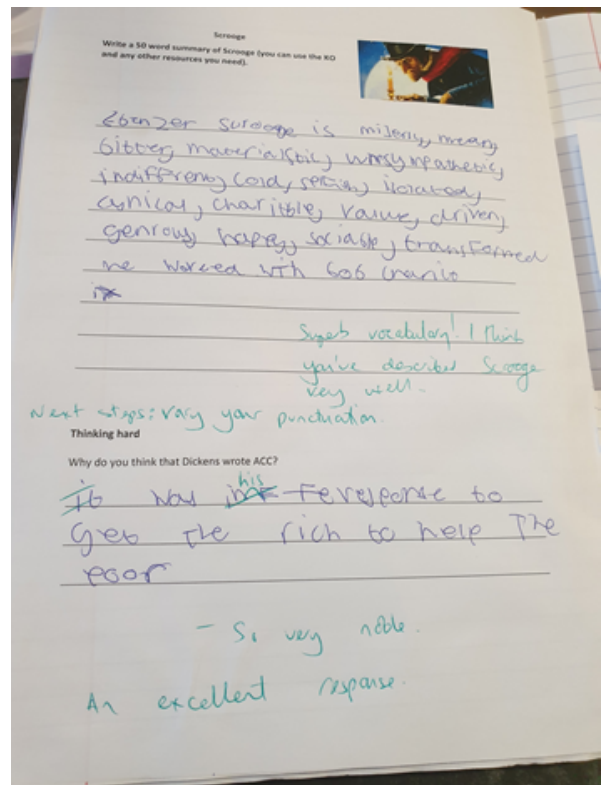 Scrooge
Write a 50 word summary of Scrooge (you can use the KO
and any other resources you need).
Ebenzer surooge is miserly, mean,
bitter, materialistic, unsympathetic,
indifferent, cold, selfish, isolated,
cynical, charitble, value, driven,
genrous, happy, sociable, transformed
he worked with bob
Superb vocabulary! I think
you've described Scrooge
very well.
Next steps: vary your punctuation.
Thinking hard
Why do you think that Dickens wrote ACC?
his
It was to
Get the rich to help The
poor
- So very noble.
An excellent response.